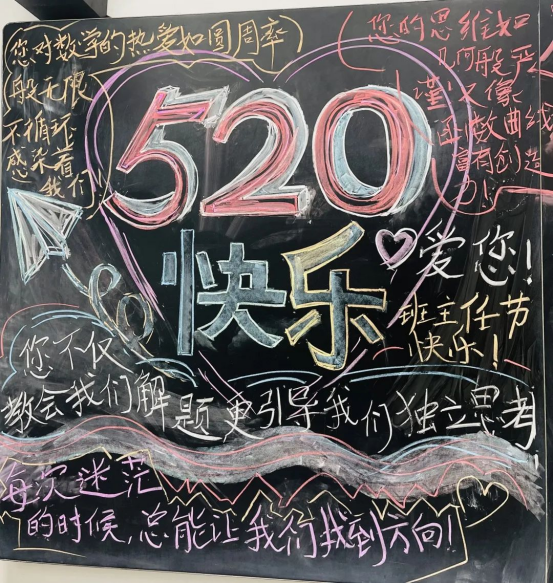 您对数学的热爱如圆周率
般无限
不循环
感染着
我们!
您的思维如
几何般严
谨又像
函数曲线
富有创造
力!
520
快乐
爱您!
班主任节
快乐!
您不仅
教会我们解题更引导我们独立思考!
每次迷茫
的时候,总能让我们找到方向!